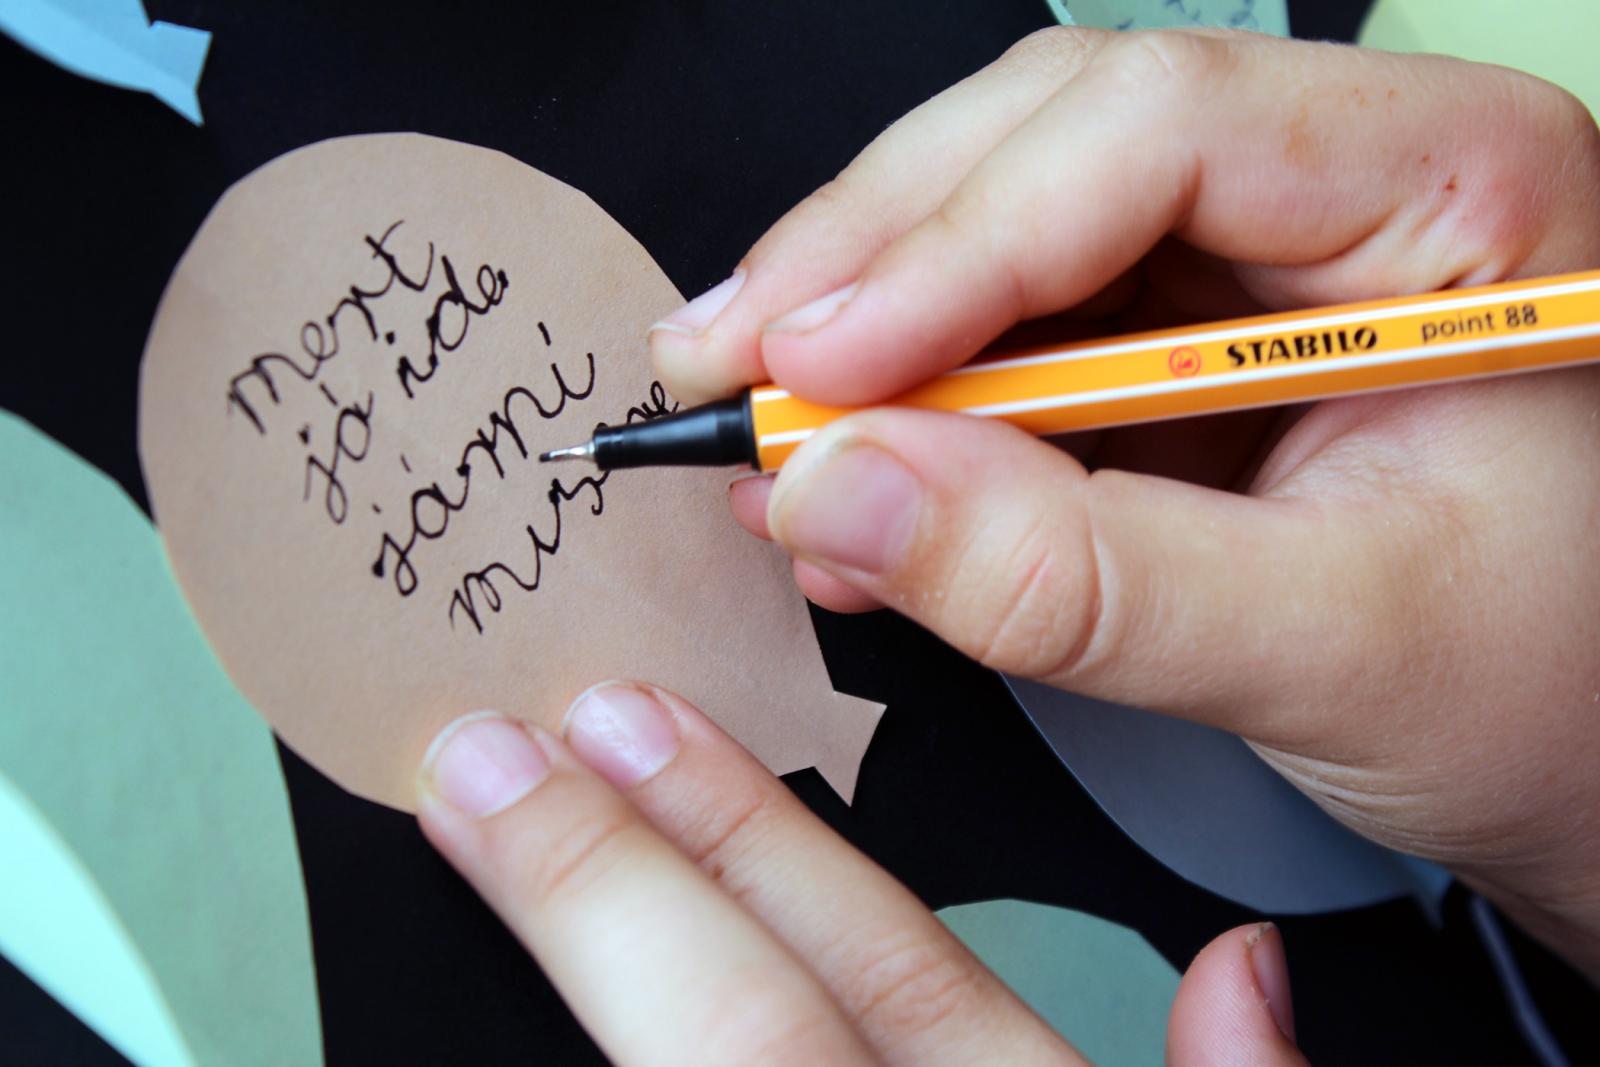 mert
jó ide
járni
STABILO point 88